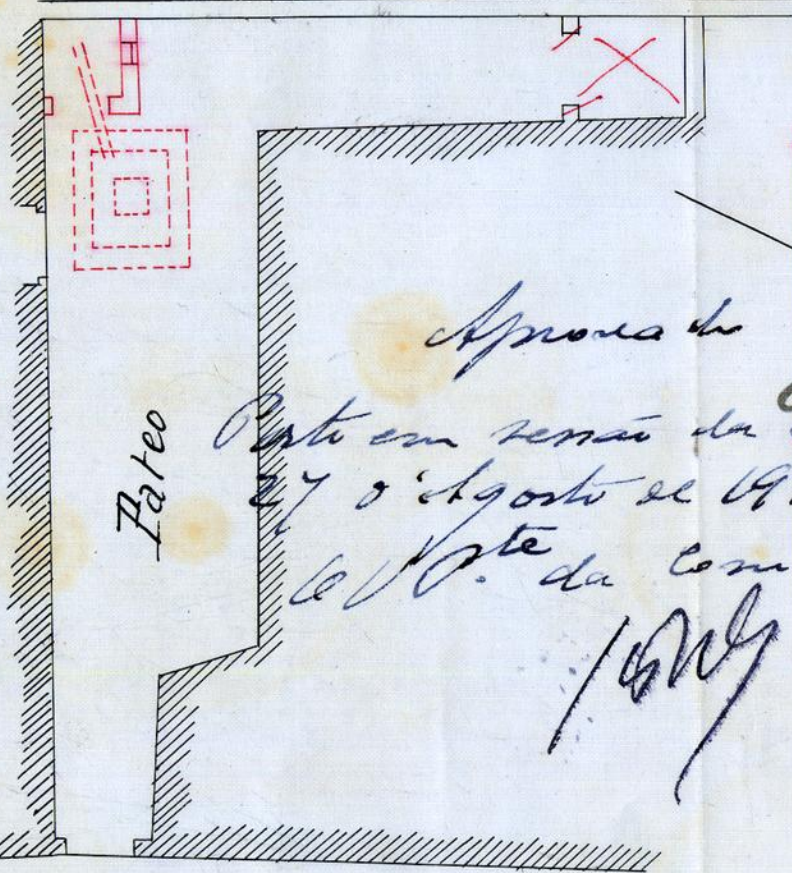 Pateo
Aprovado
Porto em sessão da
27 d'Agosto de 19
O V. P.te da Com